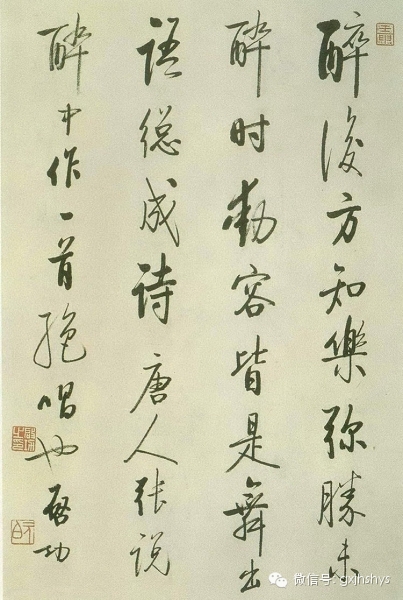 醉後方知樂弥勝未
醉时動容皆是舞出
語總成詩唐人張説
醉中作一首絶唱也啓功
微信号: gxjhshys